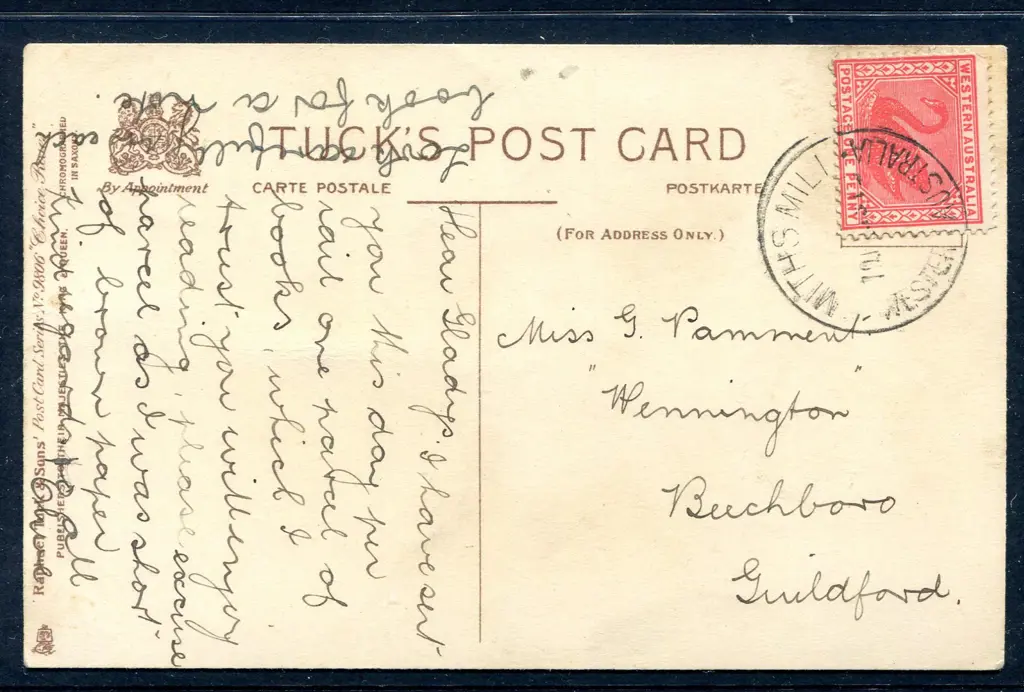 TUCK'S POST CARD
By Appointment
CARTE POSTALE
POSTKARTE
(FOR ADDRESS ONLY.)
WESTERN AUSTRALIA
POSTAGE ONE PENNY
MITHS MILL
WESTERN AUSTRALIA
Miss G. Pamment
"Wennington"
Beechboro
Guildford.
Dear Gladys, I have sent
you this day per
rail one parcel of
books, which I
trust you will enjoy
reading, please excuse
parcel as I was short
of brown paper
Look carefully in each
book for a note.
Raphael Tuck & Sons' Post Card Series No 9806 "Choice Roses"
PUBLISHERS TO THEIR MAJESTIES THE KING & QUEEN.
CHROMOGRAPHED
IN SAXONY